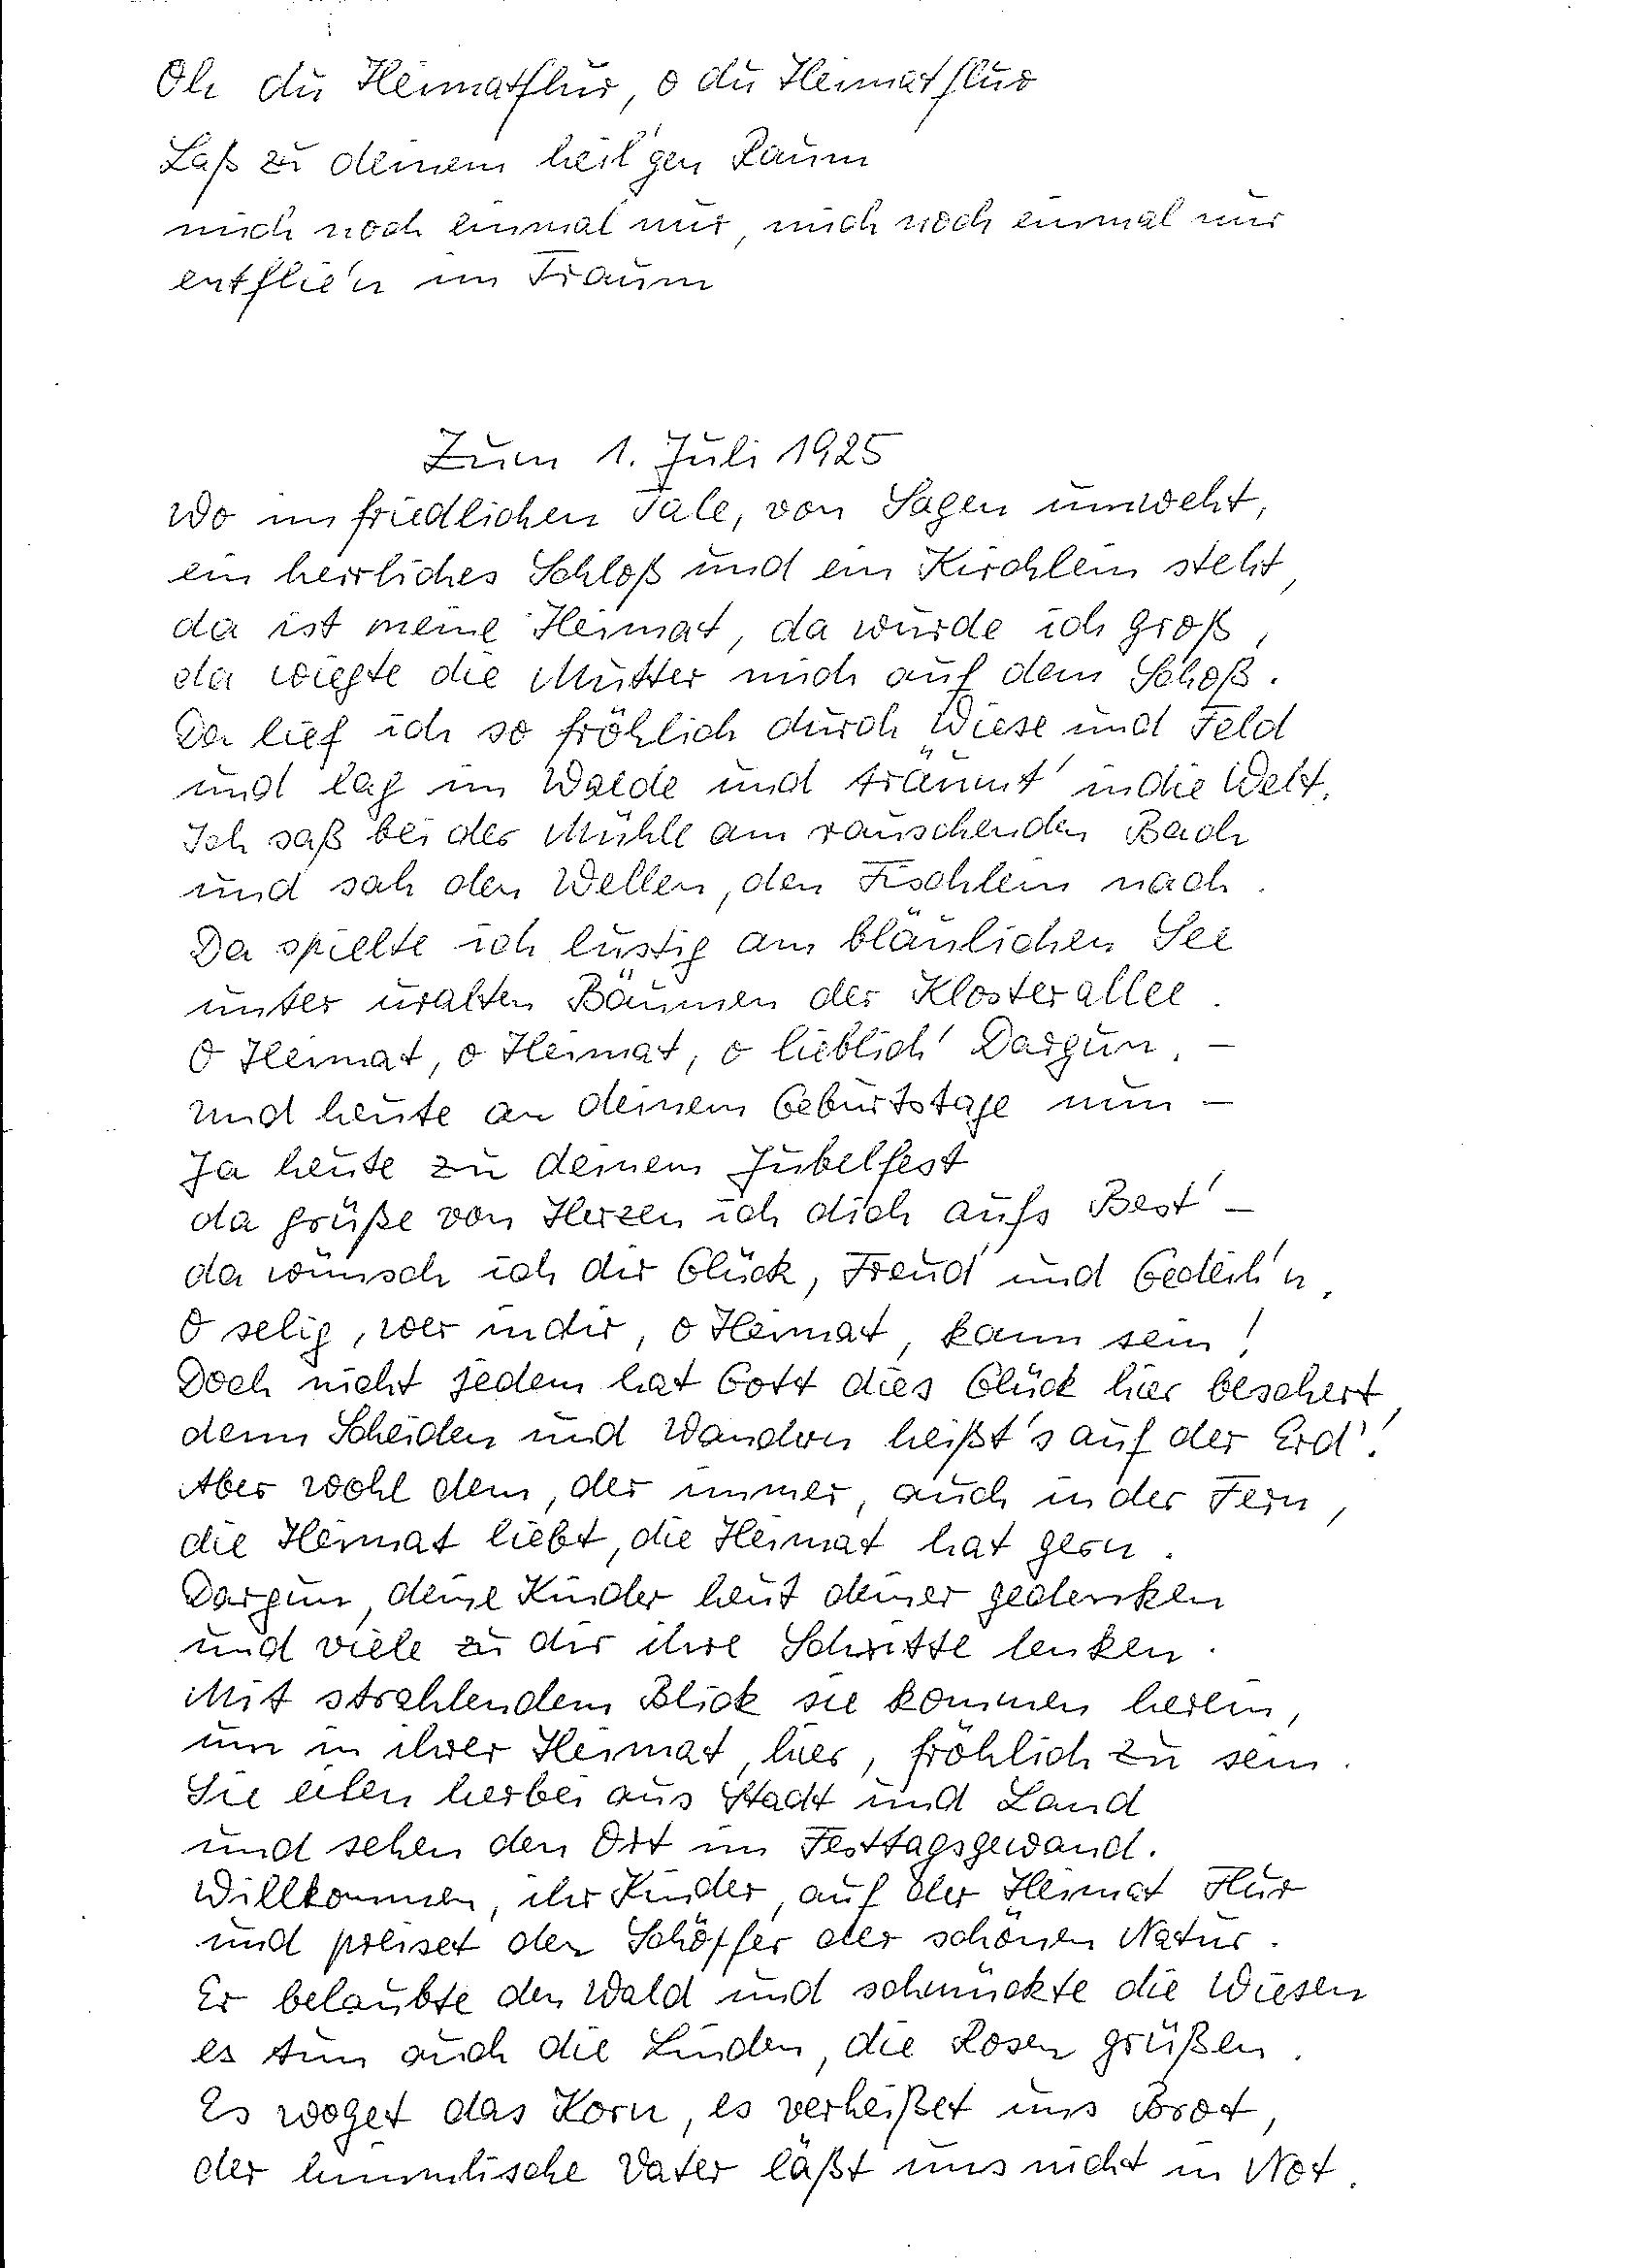 Oh du Heimatflur, o du Heimatflur
Laß zu deinem heil'gen Raum
mich noch einmal nur, mich noch einmal nur
entflie'n im Traum
Zum 1. Juli 1925
Wo im friedlichen Tale, von Sagen umweht,
ein herrliches Schloß und ein Kirchlein steht,
da ist meine Heimat, da wurde ich groß,
da wiegte die Mutter mich auf dem Schoß.
Da lief ich so fröhlich durch Wiese und Feld
und lag im Walde und träumt' in die Welt.
Ich saß bei der Mühle am rauschenden Bach
und sah den Wellen, den Fischlein nach.
Da spielte ich lustig am bläulichen See
unter uralten Bäumen der Klosterallee.
O Heimat, o Heimat, o lieblich' Dargun, –
und heute an deinem Geburtstage nun –
Ja heute zu deinem Jubelfest
da grüße von Herzen ich dich aufs Best' –
da wünsch ich dir Glück, Freud' und Gedeih'n,
O selig, wer in dir, o Heimat, kann sein!
Doch nicht jedem hat Gott dies Glück hier beschert,
denn Scheiden und Wandern heißt's auf der Erd'!
Aber wohl dem, der immer, auch in der Fern,
die Heimat liebt, die Heimat hat gern.
Dargun, deine Kinder heut deiner gedenken
und viele zu dir ihre Schritte lenken.
Mit strahlendem Blick sie kommen herein,
um in ihrer Heimat, hier, fröhlich zu sein.
Sie eilen herbei aus Stadt und Land
und sehen den Ort im Festtagsgewand.
Willkommen, ihr Kinder, auf der Heimat Flur
und preiset den Schöpfer der schönen Natur.
Er belaubte den Wald und schmückte die Wiesen
es tun auch die Linden, die Rosen grüßen.
Es woget das Korn, es verheißet uns Brot,
der himmlische Vater läßt uns nicht in Not.